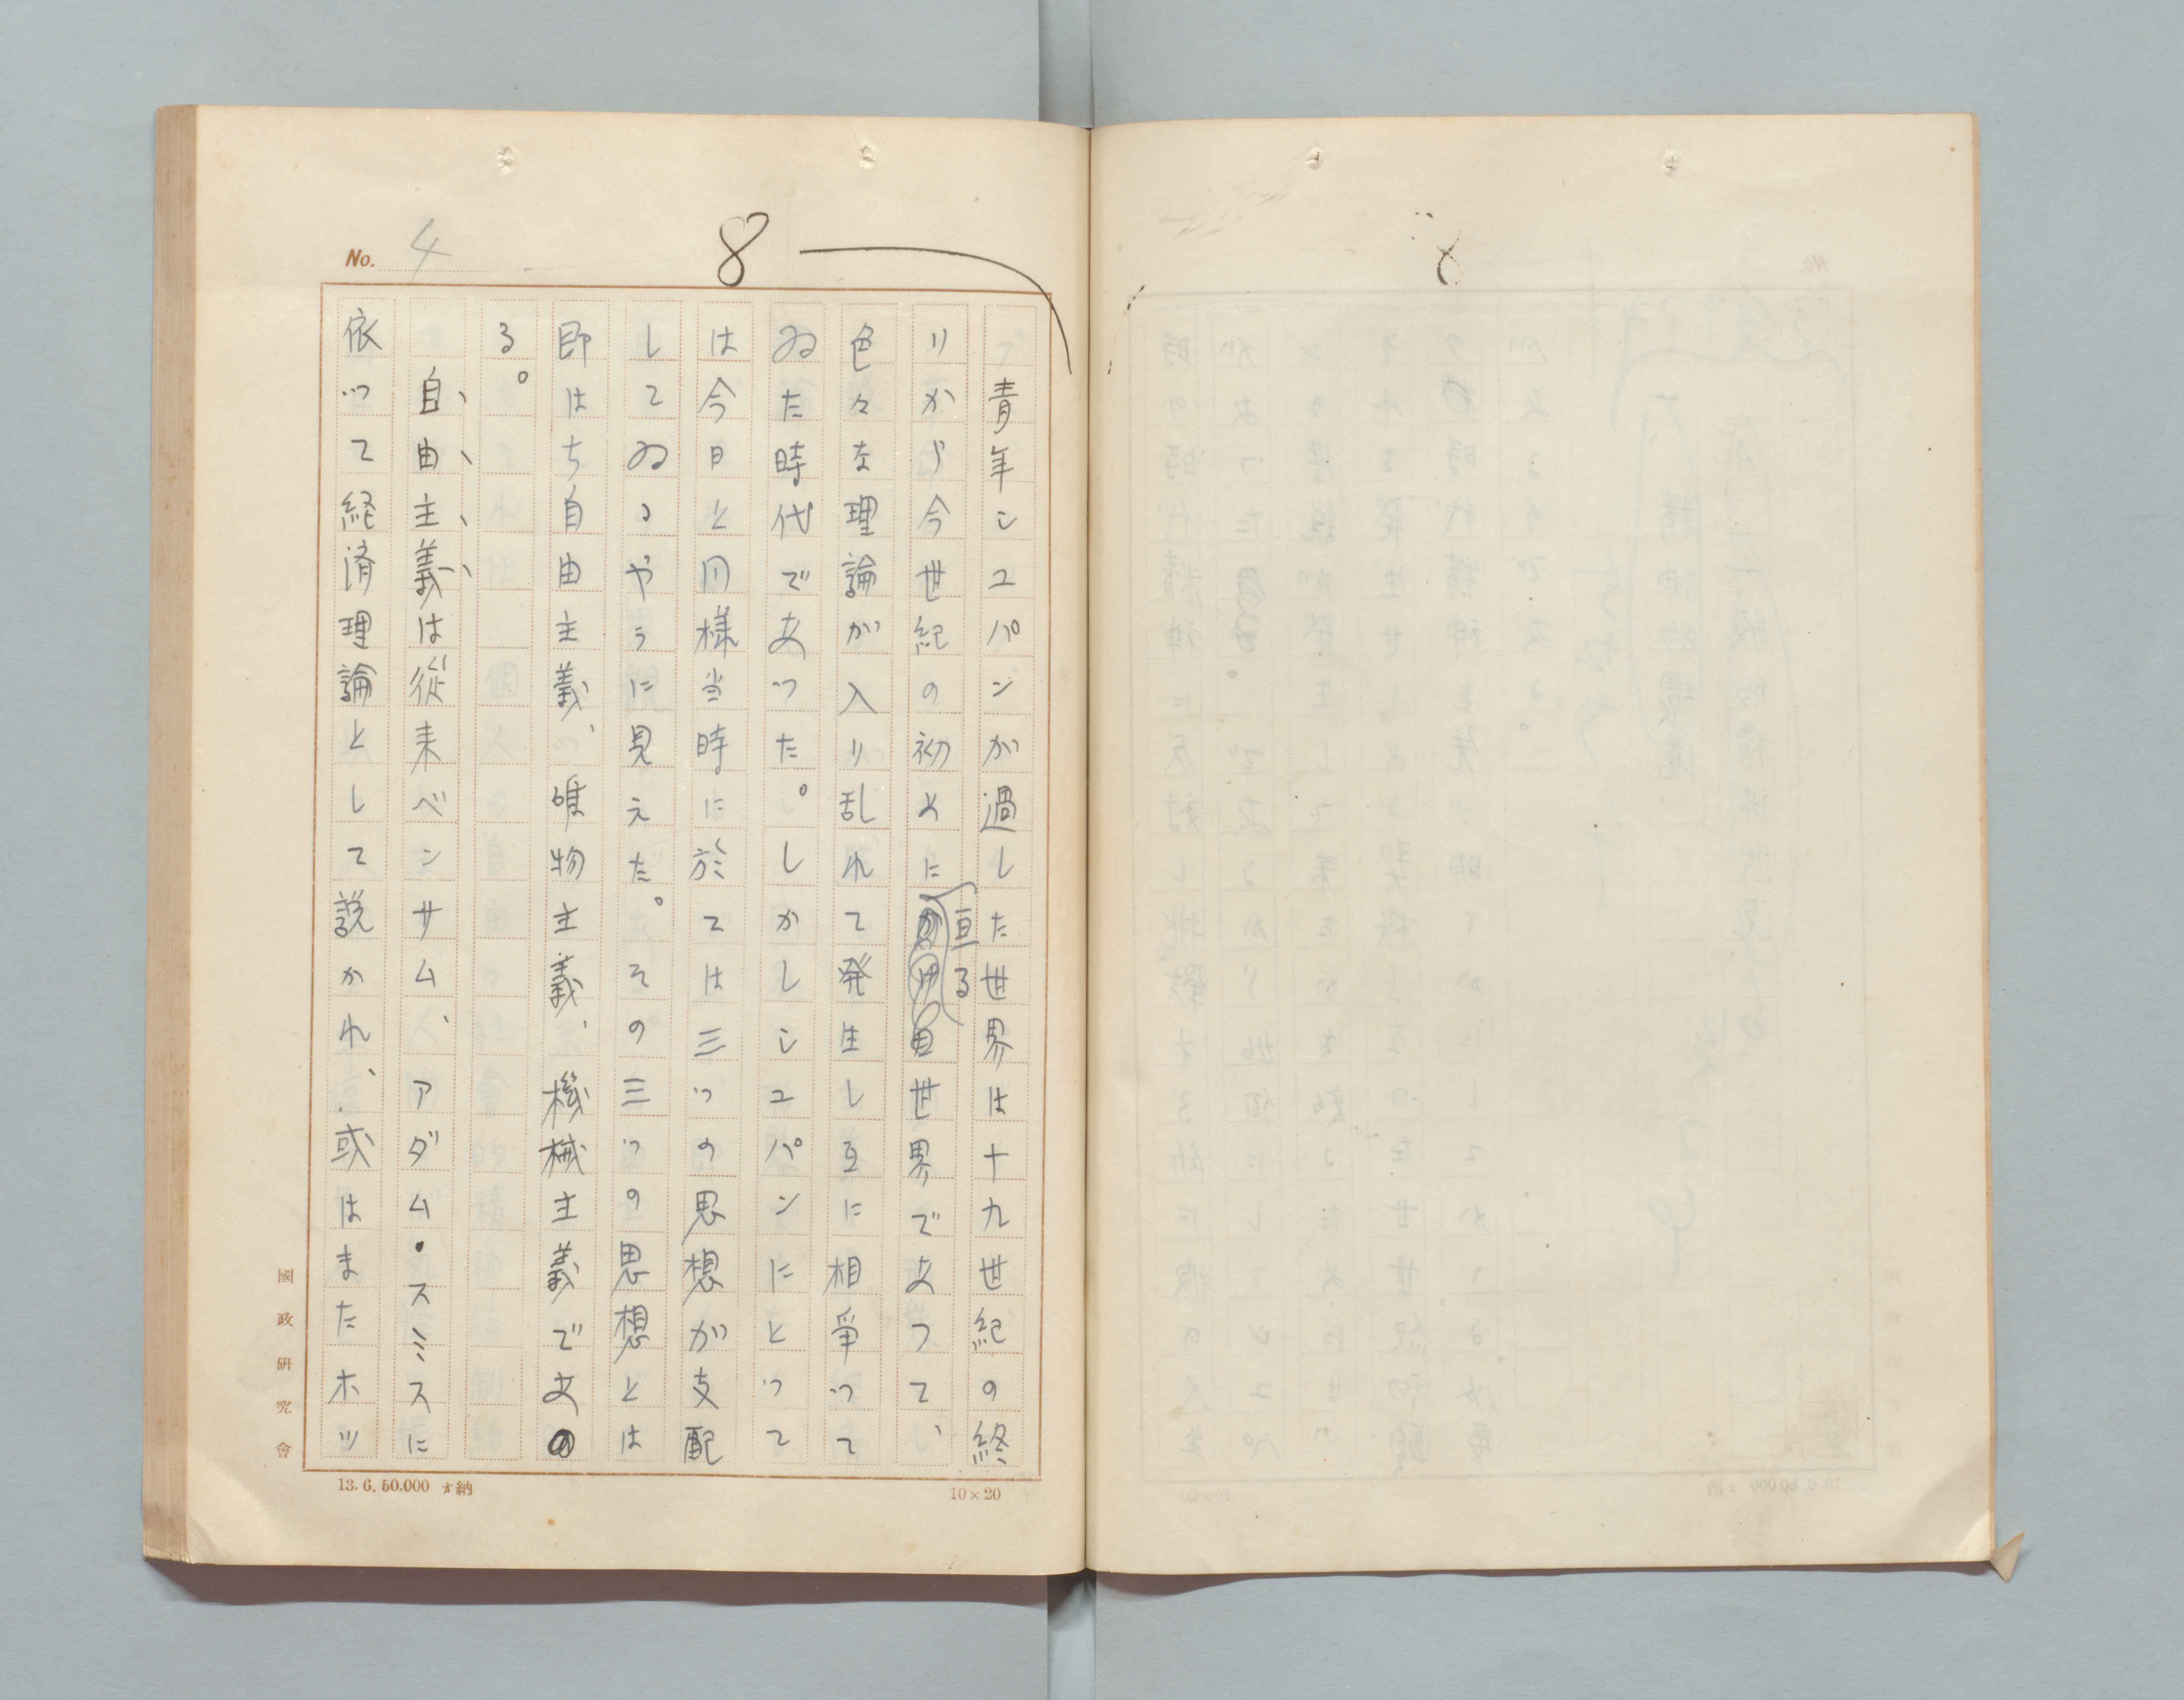 No. 4
8
青年シユパンが過した世界は十九世紀の終
りから今世紀の初めに亘る世界であつて、
色々な理論が入り乱れて発生し互に相爭つて
ゐた時代であつた。しかしシユパンにとつて
は今日と同様当時に於ては三つの思想が支配
してゐるやうに見えた。その三つの思想とは
即はち自由主義、唯物主義、機械主義であ
る。
自由主義は從来ベンサム、アダム・スミスに
依つて経済理論として説かれ、或はまたホツ
國政研究會
13.6.50.000 オ納
10×20